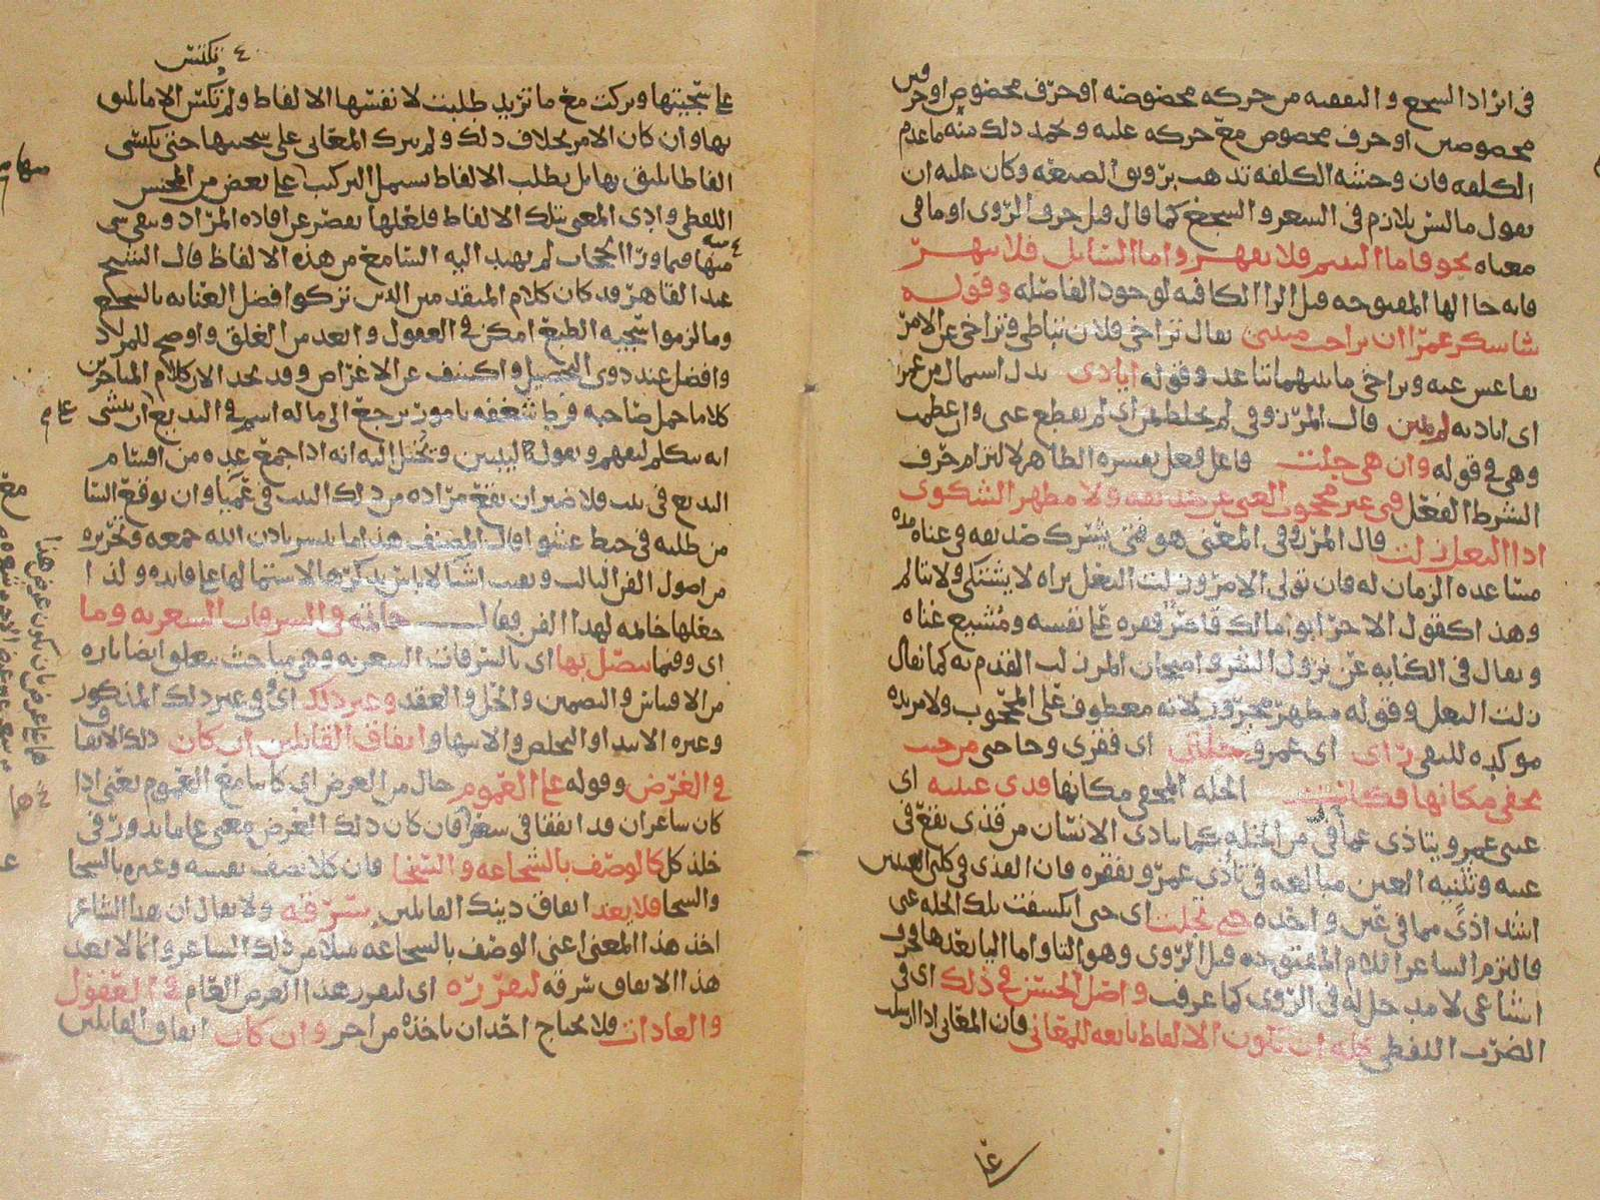 في ايراد السجع والتقفيه من حركه مخصوصه او حرف مخصوص او حرفين
مخصوصين او حرف مخصوص مع حركه عليه ويحمد ذلك منه ما عدم
الكلفه فان وحشه الكلفه تذهب برونق الصنعه وكان عليه ان
يقول ما ليس بلازم في الشعر والسجع كما قال قبل حرف الروى او ما في
معناه نحو فاما اليتيم فلا تقهر واما السايل فلا تنهر
فانه جا الها المفتوحه قبل الرا الكافيه لوجود الفاصله وقوله
شاشكر عمرا ان تراخت منيتى يقال تراخى فلان تباطى وتراخى عن الامر
تقاعس عنه وتراخى ما بينهما تباعد وقوله ايادى بدل اشتمال من عمرا
اى اياديه لم تمنن قال المرزوقى لم تخلط بمن اى لم تقطع عنى وان عظمت
وهى في قوله وان هى جلت فاعل فعل يفسره الظاهر لالتزام حرف
الشرط الفعل فتى غير محجوب الغنى عن صديقه ولا مظهر الشكوى
اذا النعل زلت قال المرزوقى المعنى هو فتى يشرك صديقه في غناه مده
مساعده الزمان له فان تولى الامر وزلت النعل يراه لا يشتكى ولا يتالم
وهذا كقول الاخر ابو مالك قاصر فقره على نفسه ومشيع غناه
ويقال في الكنايه عن نزول الشر وامتحان المر زلت القدم به كما يقال
زلت النعل وقوله مظهر مجرور لانه معطوف على المحجوب ولا مزيده
موكده للنفى راى اى عمرو خلتى اى فقرى وحاجتى من حيث
يخفى مكانها فكانت الخله المخفى مكانها قذى عينيه اى
عينى عمرو يتاذى عمرو في من الخله كما يتاذى الانسان من قذى يقع في
عينه وتثنيه العين مبالغه في تاذى عمرو بفقره فان القذى في كلتى العينين
اشد اذى مما في عين واحده حتى تجلت اى حتى انكشفت تلك الخله عنى
فالتزم الشاعر اللام المفتوحه قبل الروى وهو التا واما اليا بعدها فحرف
اشباعى لا مدخل له في الروى كما عرفت واصل الحسن في ذلك اى في
الضرب اللفظى كله ان تكون الالفاظ تابعه للمعانى فان المعانى اذا ارسلت
على سجيتها وتركت مع ما تريد طلبت لا نفسها الالفاظ ولم تكتس الا ما يليق
بها وان كان الامر بخلاف ذلك ولم يترك المعانى على سجيتها حتى تكتسى
الفاظا يليق بها بل يطلب الالفاظ يشمل التركيب على بعض من المحسن
اللفظى وادى المعنى بتلك الالفاظ فلعلها تقصر عن افاده المراد ويبقى شى
منها فيما ورا الحجاب لم يهتد اليه السامع من هذه الالفاظ قال الشيخ
عبد القاهر قد كان كلام المتقدمين الذين تركوا فضل العنايه بالسجع
وما لزموا سجيه الطبع امكن في العقول وابعد من الغلق واوضح للمراد
وافضل عند ذوى التحصيل واكشف عن الاغراض وقد نجد الان كلام المتاخرين
كلاما حمل صاحبه فرط شغفه بامور ترجع الى ما له اسم في البديع ان ينسى
انه يتكلم ليفهم ويقول ليبين ويخيل اليه انه اذا جمع عده من اقسام
البديع في بيت فلا ضير ان يقع مراده من ذلك البيت في عميا وان يوقع السا
من طلبه في خبط عشوا قال المصنف هذا ما تيسر باذن الله جمعه وتحريره
من اصول الفن الثالث وبقيت اشيا لا باس بذكرها لاشتمالها على فايده ولذا
جعلها خاتمه لهذا الفن فقال خاتمه في السرقات الشعريه وما
اى وفيما يتصل بها اى بالسرقات الشعريه وهى مباحث تتعلق ايضا تاره
من الاقتباس والتضمين والحل والعقد وغير ذلك اى وفي غير ذلك المذكور
وغيره الابتدا والتخلص والانتها واتفاق القايلين ان كان ذلك الاتفا
في الغرض وقوله على العموم حال من الغرض اى كاينا مع العموم يعنى اذا
كان شاعران قد اتفقا في شعر فان كان ذلك الغرض معنى عاما يدور في
خلد كل كالوصف بالشجاعه والسخا فان كلا يصف نفسه وغيره بالشجا
والسخا فلا يعد اتفاق ذينك القايلين سرقه ولا يقال ان هذا الشاعر
اخذ هذا المعنى اعنى الوصف بالشجاعه مثلا من ذلك الشاعر وانما لا يعد
هذا الاتفاق سرقه لتقرره اى لتقرر هذا الغرض العام في العقول
والعادات فلا يحتاج احد ان ياخذه من اخر وان كان اتفاق القايلين